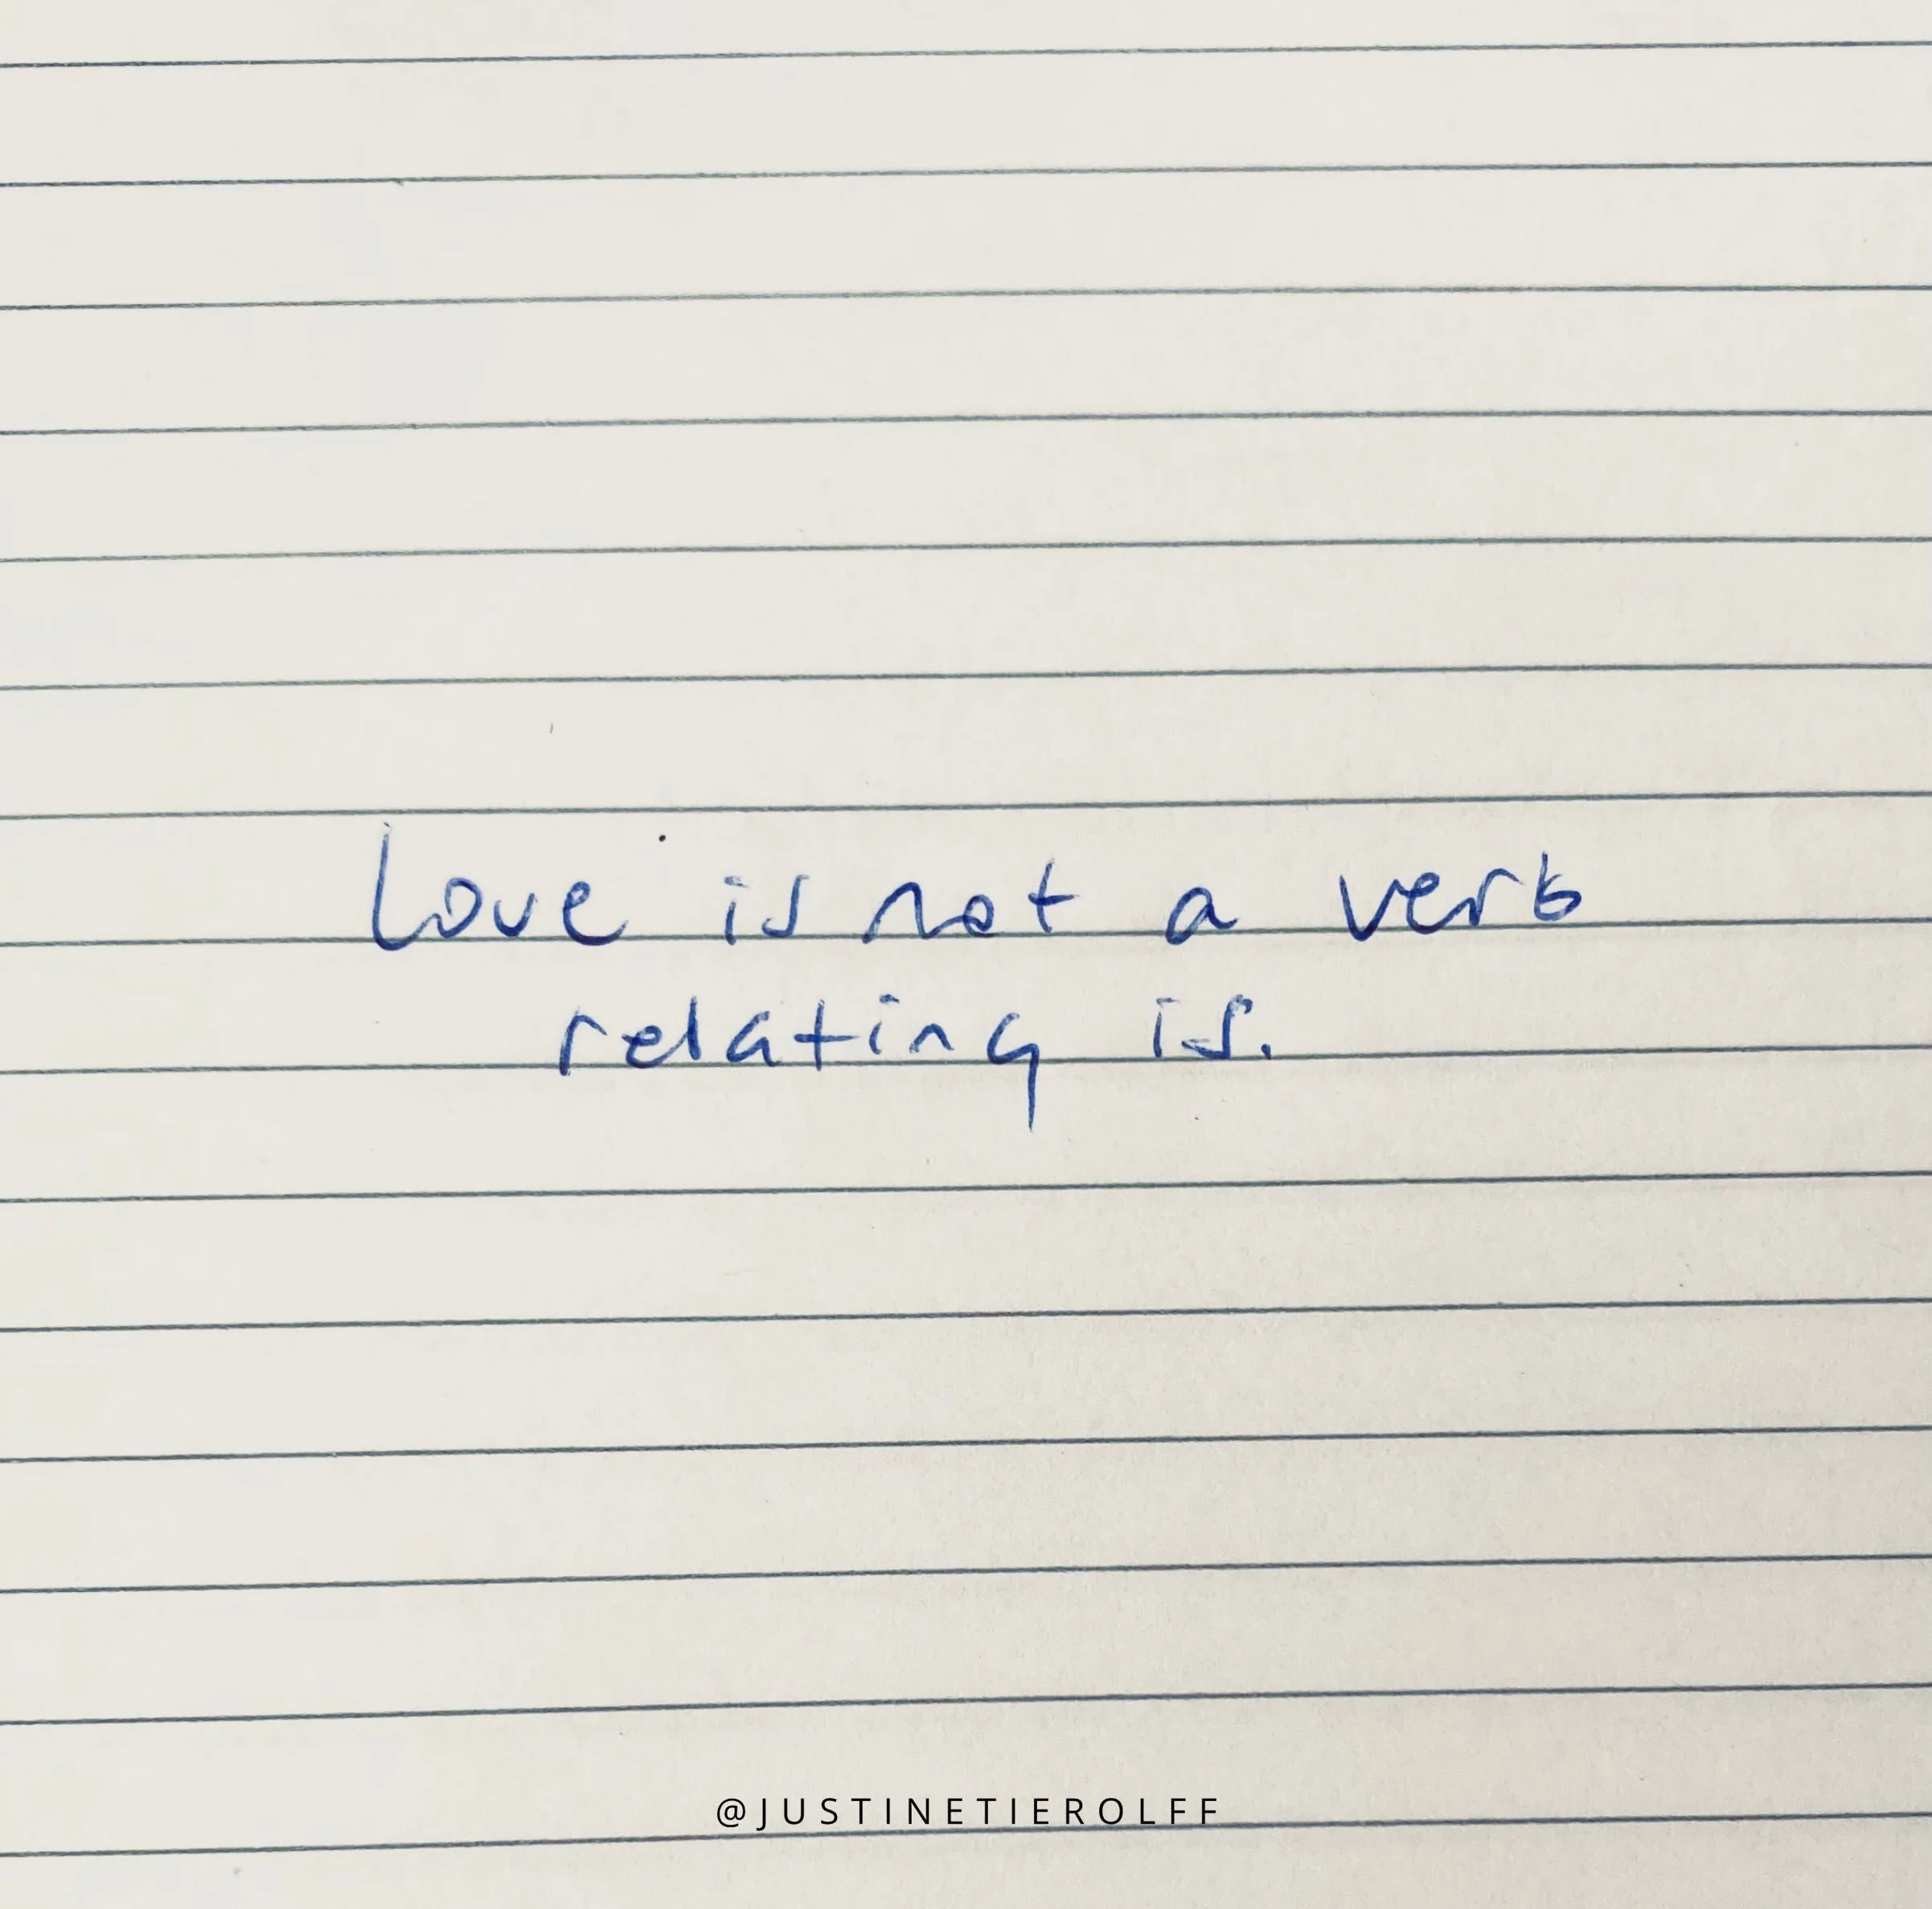 Love is not a verb
relating is.
@JUSTINETIEROLFF